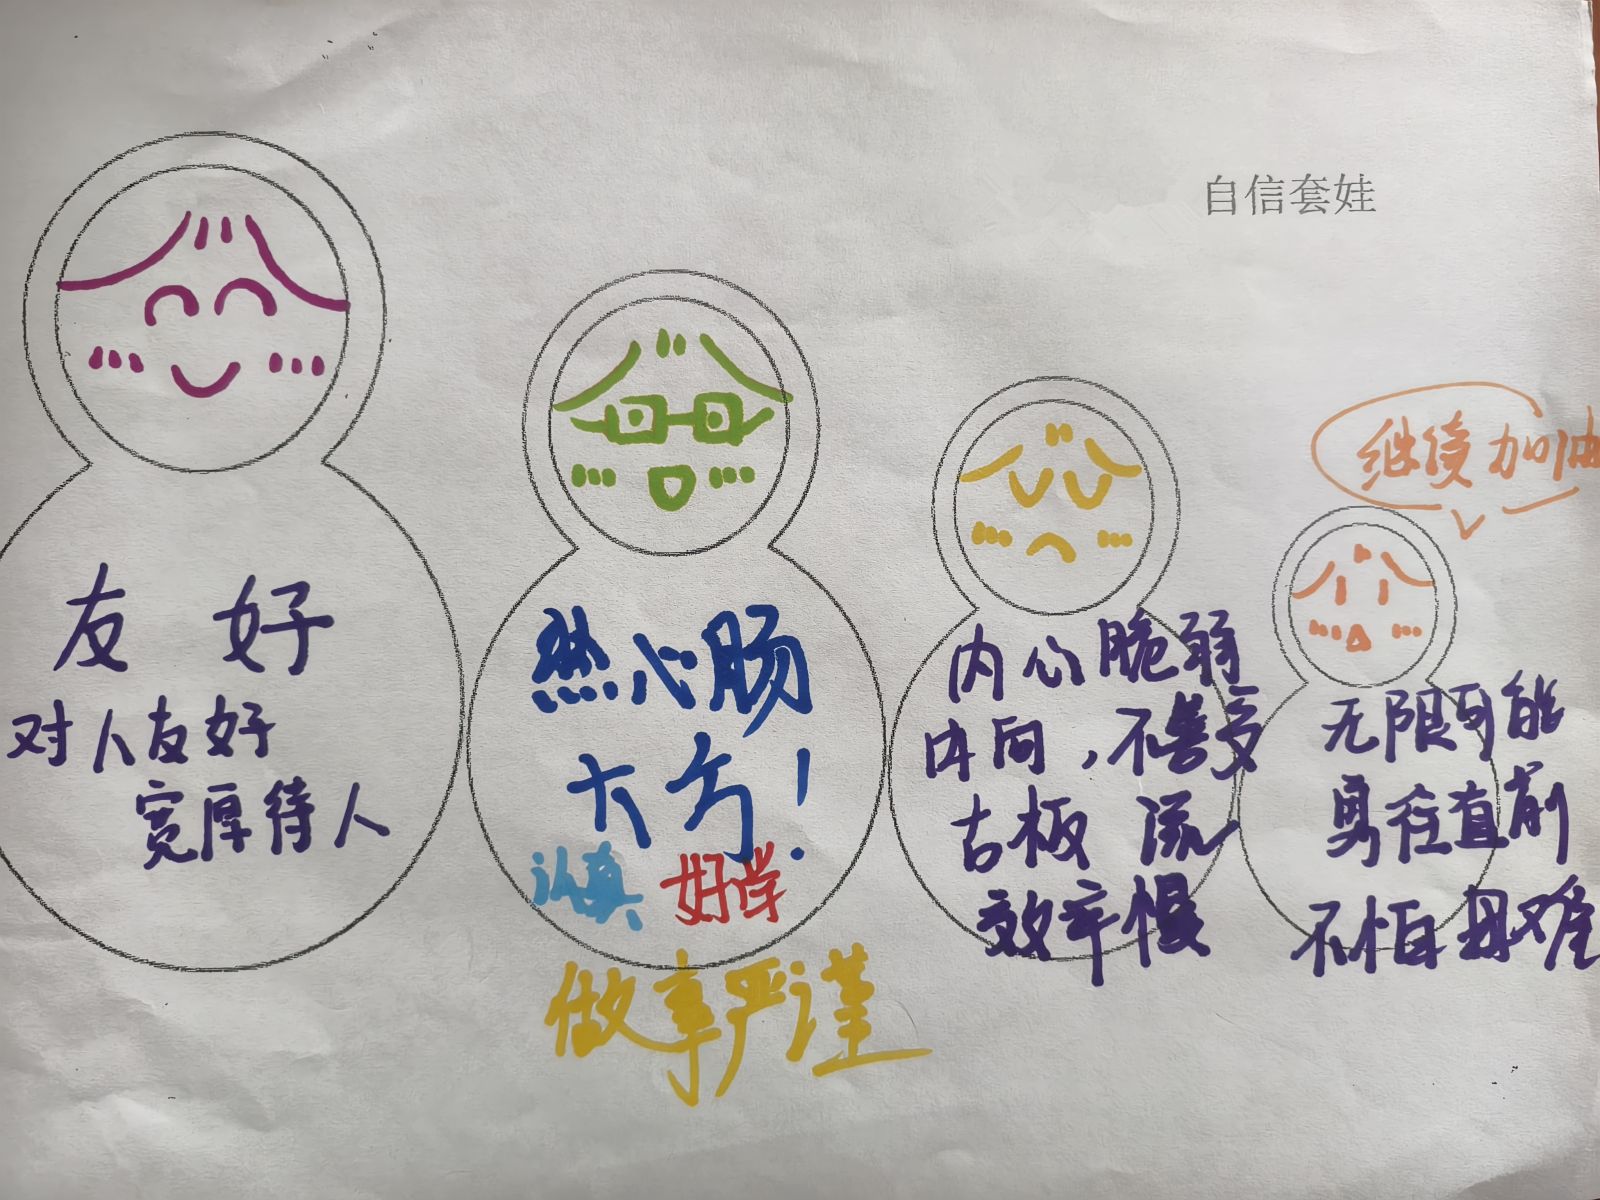 自信套娃
友好
对人友好
宽厚待人
热心肠
大方!
认真 好学
做事严谨
内心脆弱
内向,不善交
古板 流
效率慢
继续加油
无限可能
勇往直前
不怕困难